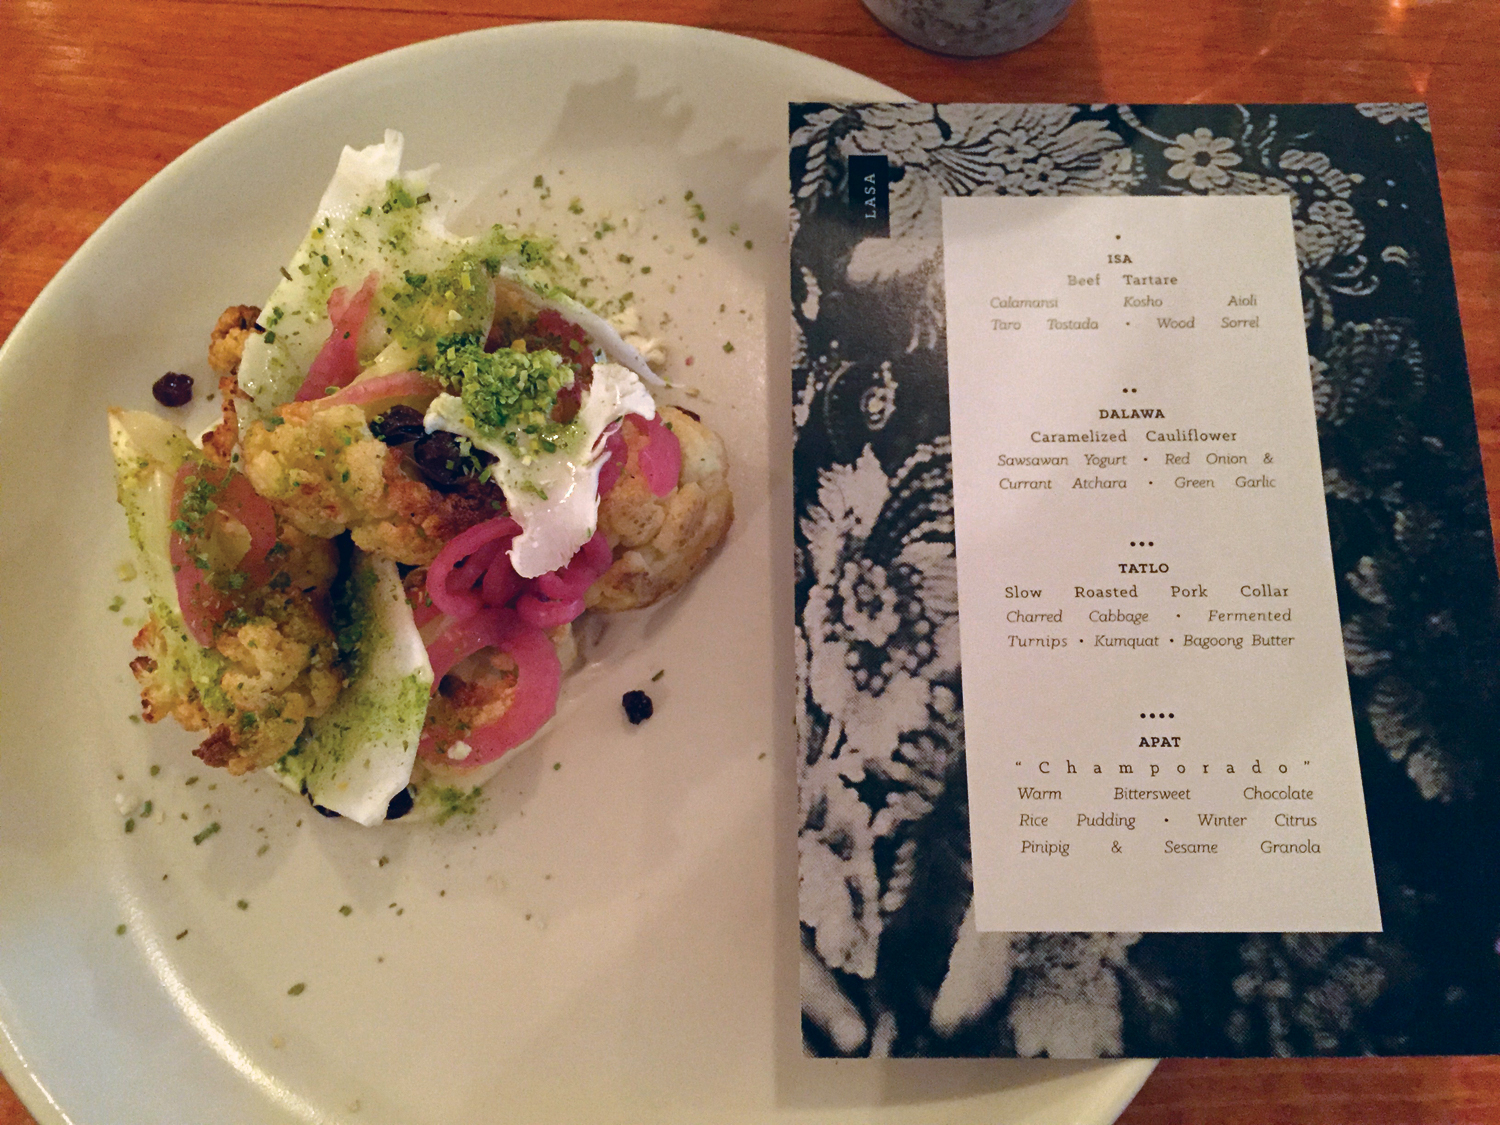 LASA
ISA
Beef Tartare
Calamansi Kosho Aioli
Taro Tostada • Wood Sorrel
DALAWA
Caramelized Cauliflower
Sawsawan Yogurt • Red Onion &
Currant Atchara • Green Garlic
TATLO
Slow Roasted Pork Collar
Charred Cabbage • Fermented
Turnips • Kumquat • Bagoong Butter
APAT
"Champorado"
Warm Bittersweet Chocolate
Rice Pudding • Winter Citrus
Pinipig & Sesame Granola